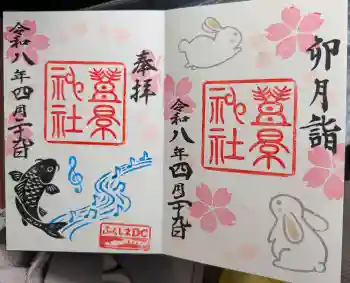 奉拝
神社
令和八年四月二十九日
ふくしまDC
卯月詣
神社
令和八年四月二十九日